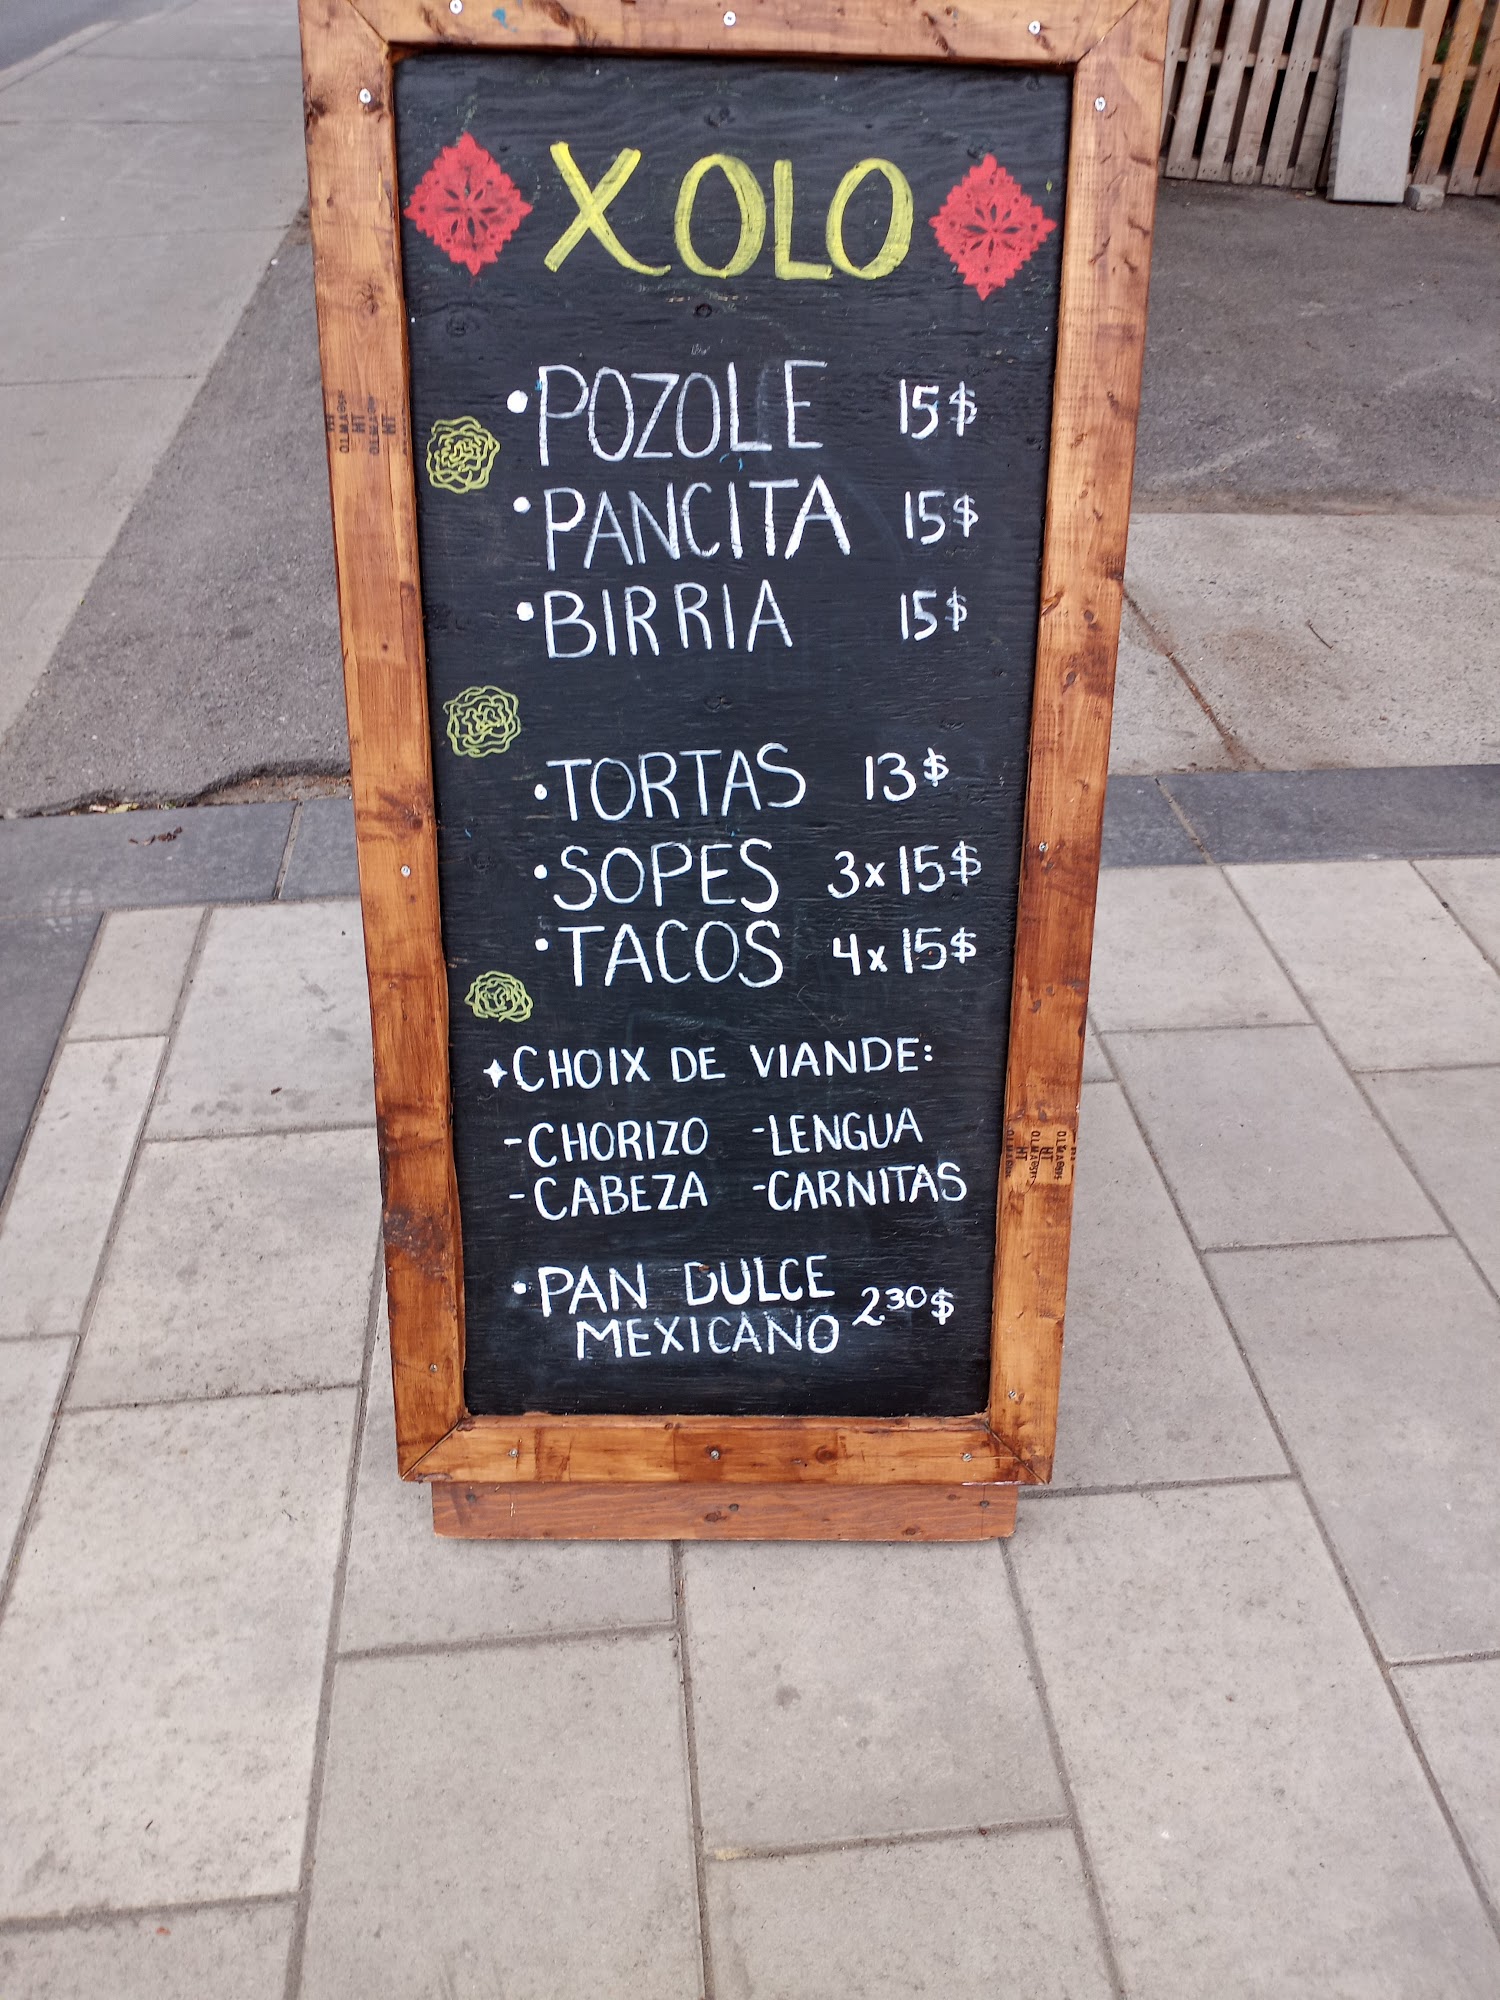 XOLO
•POZOLE 15$
•PANCITA 15$
•BIRRIA 15$
•TORTAS 13$
•SOPES 3x15$
•TACOS 4x15$
✦CHOIX DE VIANDE:
-CHORIZO -LENGUA
-CABEZA -CARNITAS
•PAN DULCE
MEXICANO 2.30$